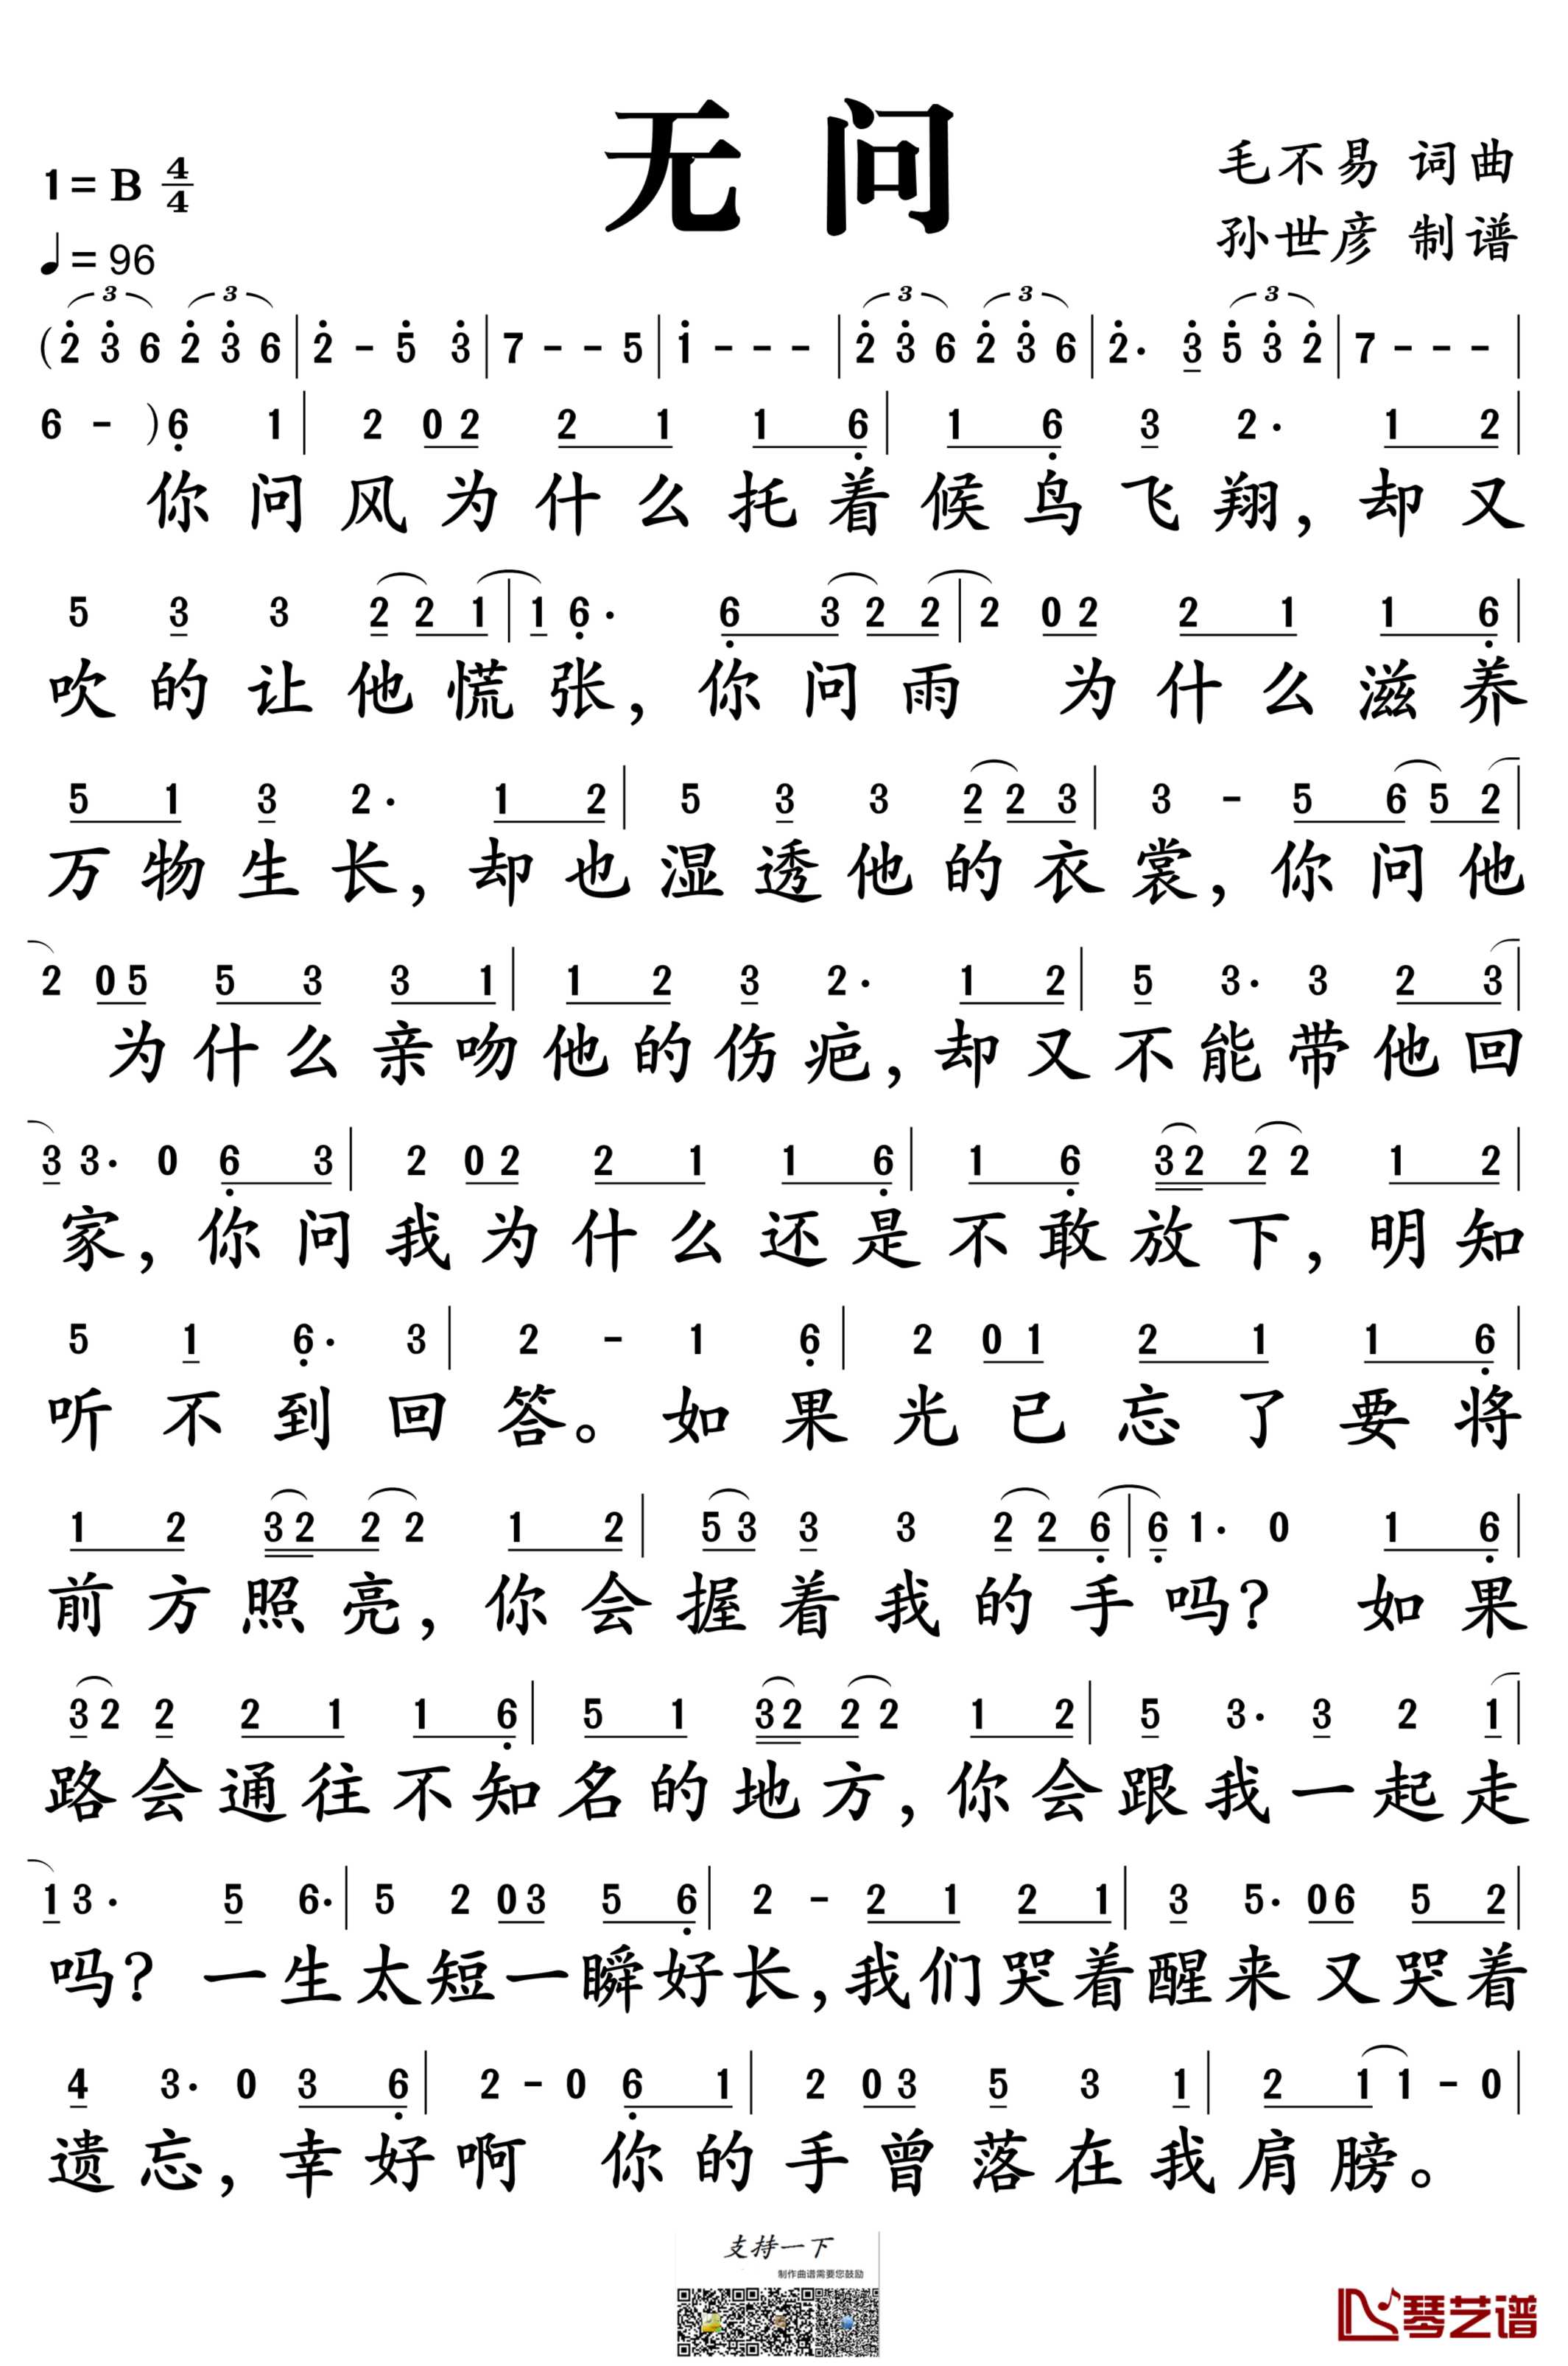 无问
1=B 4/4
毛不易 词曲
♩=96
孙世彦 制谱
3 3 3 3 3
(2 3 6 2 3 6|2 - 5 3|7 - - 5|1 - - -|2 3 6 2 3 6|2· 3 5 3 2|7 - - -|
6 - )6 1|2 0 2 2 1 1 6|1 6 3 2· 1 2|
你问风为什么托着候鸟飞翔,却又
5 3 3 2 2 1|1 6· 6 3 2 2|2 0 2 2 1 1 6|
吹的让他慌张,你问雨 为什么滋养
5 1 3 2· 1 2|5 3 3 2 2 3|3 - 5 6 5 2|
万物生长,却也湿透他的衣裳,你问他
2 0 5 5 3 3 1|1 2 3 2· 1 2|5 3· 3 2 3|
为什么亲吻他的伤疤,却又不能带他回
3 3· 0 6 3|2 0 2 2 1 1 6|1 6 3 2 2 2 1 2|
家,你问我为什么还是不敢放下,明知
5 1 6· 3|2 - 1 6|2 0 1 2 1 1 6|
听不到回答。如果光已忘了要将
1 2 3 2 2 2 1 2|5 3 3 3 2 2 6|6 1· 0 1 6|
前方照亮,你会握着我的手吗? 如果
3 2 2 2 1 1 6|5 1 3 2 2 2 1 2|5 3· 3 2 1|
路会通往不知名的地方,你会跟我一起走
1 3· 5 6·|5 2 0 3 5 6|2 - 2 1 2 1|3 5· 0 6 5 2|
吗? 一生太短一瞬好长,我们哭着醒来 又哭着
4 3· 0 3 6|2 - 0 6 1|2 0 3 5 3 1|2 1 1 - 0|
遗忘,幸好啊 你的手曾落在我肩膀。
支持一下
制作曲谱需要您鼓励
琴艺谱